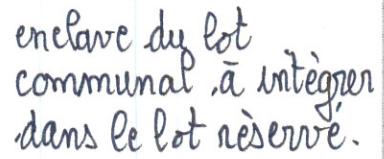 enclave du lot
communal, à intègrer
dans le lot rèservé.